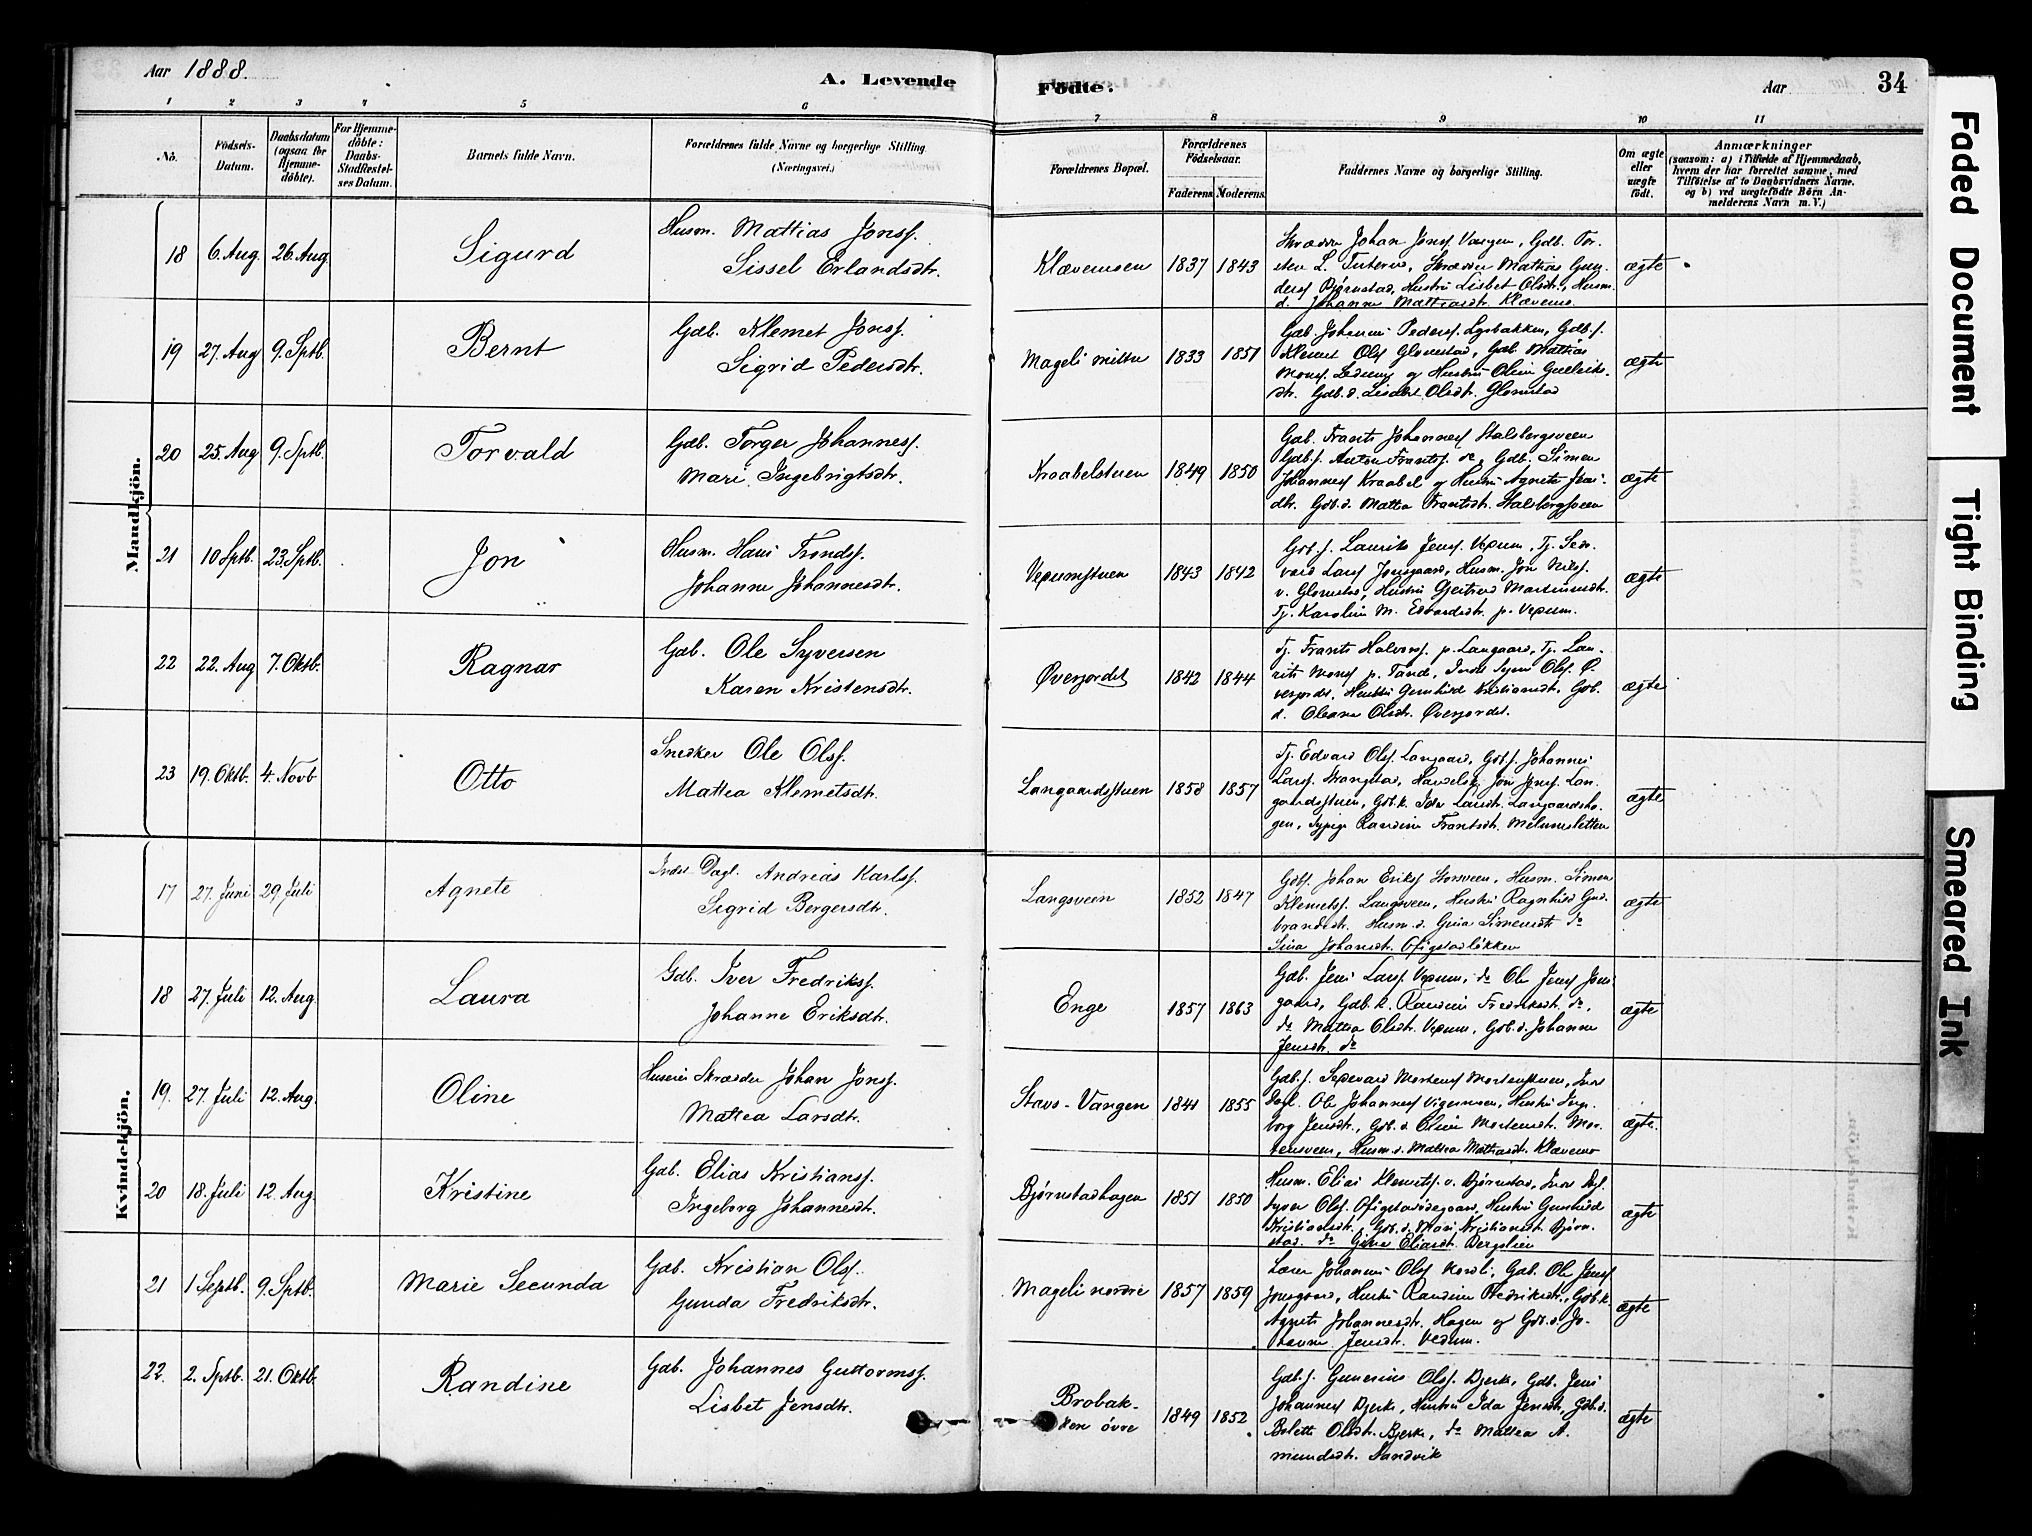 Aar 1888.
A. Levende Födte.
Aar
34
1 2 3 4 5 6 7 8 9 10 11
No.
Födsels-Datum.
Daabsdatum (ogsaa for Hjemme-döbte).
For Hjemme-döbte: Daabs-Stadfæstel-ses Datum.
Barnets fulde Navn.
Forældrenes fulde Navne og borgerlige Stilling (Næringsvei.)
Forældrenes Bopæl.
Forældrenes Födselsaar.
Faderens Moderens
Faddernes Navne og borgerlige Stilling.
Om ægte eller uægte födt.
Anmærkninger
(saasom: a) i Tilfælde af Hjemmedaab, hvem der har forrettet samme, med Tilföielse af to Daabsvidners Navne. og b) ved uægtefödte Börn An-melderens Navn m.V.)
Mandkjön.
18 6. Aug. 26. Aug Sigurd
Husm. Mattias Jonsf.
Sissel Erlandsdtr.
Klævemoen 1837 1843
Skrædder Johan Jonsf. Vangen, Gdb. Tor-
sten L. , Skrædder Mathias Gun-
dersf Bjørnstad, Hustru Lisbet Olsdtr., Husm.
d. Johanne Mattiasdtr. Klævemo.
ægte
19 27. Aug 9. Sptb. Bernt
Gdb. Klemet Jonsf.
Sigrid Pedersdtr.
Mageli mittre 1833 1851
Gdb. Johannes Pedersf. Lysbakken, Gdb. f.
Klemet Olsf Glomstad, Gdb. Mattias
Monsf. og Hustru Oline Gulleiks-
dtr. Gdb. d. Lisabet Olsdtr. Glomstad
ægte
20 25. Aug 9. Sptb. Torvald
Gdb. Torger Johannesf.
Mari Ingebrigtsdtr.
Kraabelstuen 1849 1850
Gdb. Frants Johannesf Stalsbergsveen
Gdb. f. Anton Frantsf. do, Gdb. Simen
Johannesf Kraabel og Hustru Agnete Jens-
dtr. Gdb. d. Mattea Frantsdtr. Stalsbergsveen
ægte
21 10 Sptb. 23. Sptb. Jon
Husm. Hans Trondsf.
Johanne Johannesdtr.
Vexumstuen 1843 1842
Gdb. f. Laurits Jensf. Vexum, Tj. Sed-
vard Larsf Jonsgaard, Husm. Jon Nilsf.
v. Glomstad, Hustru Gjertrud Martinusdtr.
Tj. Karoline M. Edvardsdtr. p. Vexum.
ægte
22 22. Aug 7. Oktb. Ragnar
Gdb. Ole Syversen
Karen Kristensdtr.
Øverjordet 1842 1844
Tj. Frants Halvorsf. p. Langaard, Tj. Lau-
rits Monsf p. Tande, Inds. Syver Olsf. Ø-
verjordet, Hustru Gunhild Kristiansdtr, Gdb.
d. Oleana Olsdtr. Øverjordet.
ægte
23 19. Oktb. 4. Novb Otto
Snedker Ole Olsf.
Mattea Klemetsdtr.
Langaardsstuen 1858 1857
Tj. Edvard Olsf. Langaard, Gdb. f. Johannes
Larsf. Skangstad, Handelsk. Jon Jensf. Lan-
gaardsstuen, Gdb. k. Ida Larsdtr. Langaardsha-
gen, Sypige Randine Frantsdtr. Melumsletten
ægte
Kvindekjön.
17 27. Juni 29. Juli Agnete
Inds. Dagl. Andreas Karlsf.
Sigrid Bergersdtr.
Langsveen 1852 1847
Gdbf. Johan Eriksf Storsveen, Husm. Simen
Klemetsf. Langsveen, Hustru Ragnhild Gud-
brandsdtr. Husm. d. Gina Simensdtr do
Sina Johansdtr. Ofigstadløkken
ægte
18 27. Juli 12. Aug. Laura
Gdb. Iver Fredriksf.
Johanne Eriksdtr.
Enge 1857 1863
Gdb. Jens Larsf Vexum, do Ole Jensf Jons-
gaard, Gdb. k. Randine Fredriksdtr. do,
do Mattea Olsdtr. Vexum, Gdb. d. Johanne
Jensdtr. do
ægte
19. 27. Juli 12. Aug. Oline
Huseier Skrædder Johan Jonsf.
Mattea Larsdtr.
Stavs-Vangen 1841 1855
Gdb. f. Mortensf Mortensveen, Inds
Dagl. Ole Johannesf Vigersveen, Hustru Inge-
borg Jensdtr., Gdb. d. Oline Mortensdtr. Mor-
tensveen, Husm. d. Mattea Mathiasdtr. Klævemo
ægte.
20 18. Juli 12. Aug. Kristine
Gdb. Elias Kristiansf.
Ingeborg Johannesdtr.
Bjørnstadhagen 1851 1850
Husm. Elias Klemetsf. v. Bjørnstad, Inds Dgl.
Syver Olsf. Ofigstadødegaard, Hustru Gunhild
Kristiansdtr., Gdb. d. Mari Kristiansdtr. Bjørn-
stad. do Gine Eliasdtr. Bergslien
ægte
21 1 Septb. 9. Sptb. Marie Secunda
Gdb. Kristian Olsf.
Gunda Fredriksdtr.
Mageli nordre 1857 1859
Lærer Johannes Olsf Kordli, Gdb. Ole Jensf
Jonsgaard, Hustru Randine Fredriksdtr., Gdb. k.
Agnete Johannesdtr. Hagen og Gdb. d. Jo-
hanne Jensdtr. Vexum.
ægte
22. 2. Sptb. 21. Oktb. Randine
Gdb. Johannes Guttormsf.
Lisbet Jensdtr.
Brobak-
ken övre 1849 1852
Gdb. f. Gunerius Olsf. Bjerke, Gdb. Jens
Johannesf Bjerke, Hustru Ida Jensdtr, Gdb. d.
Bolette Olsdtr. Bjerke, do Mattea A-
mundsdtr. Sandvik
ægte
Faded Document
Tight Binding
Smeared Ink